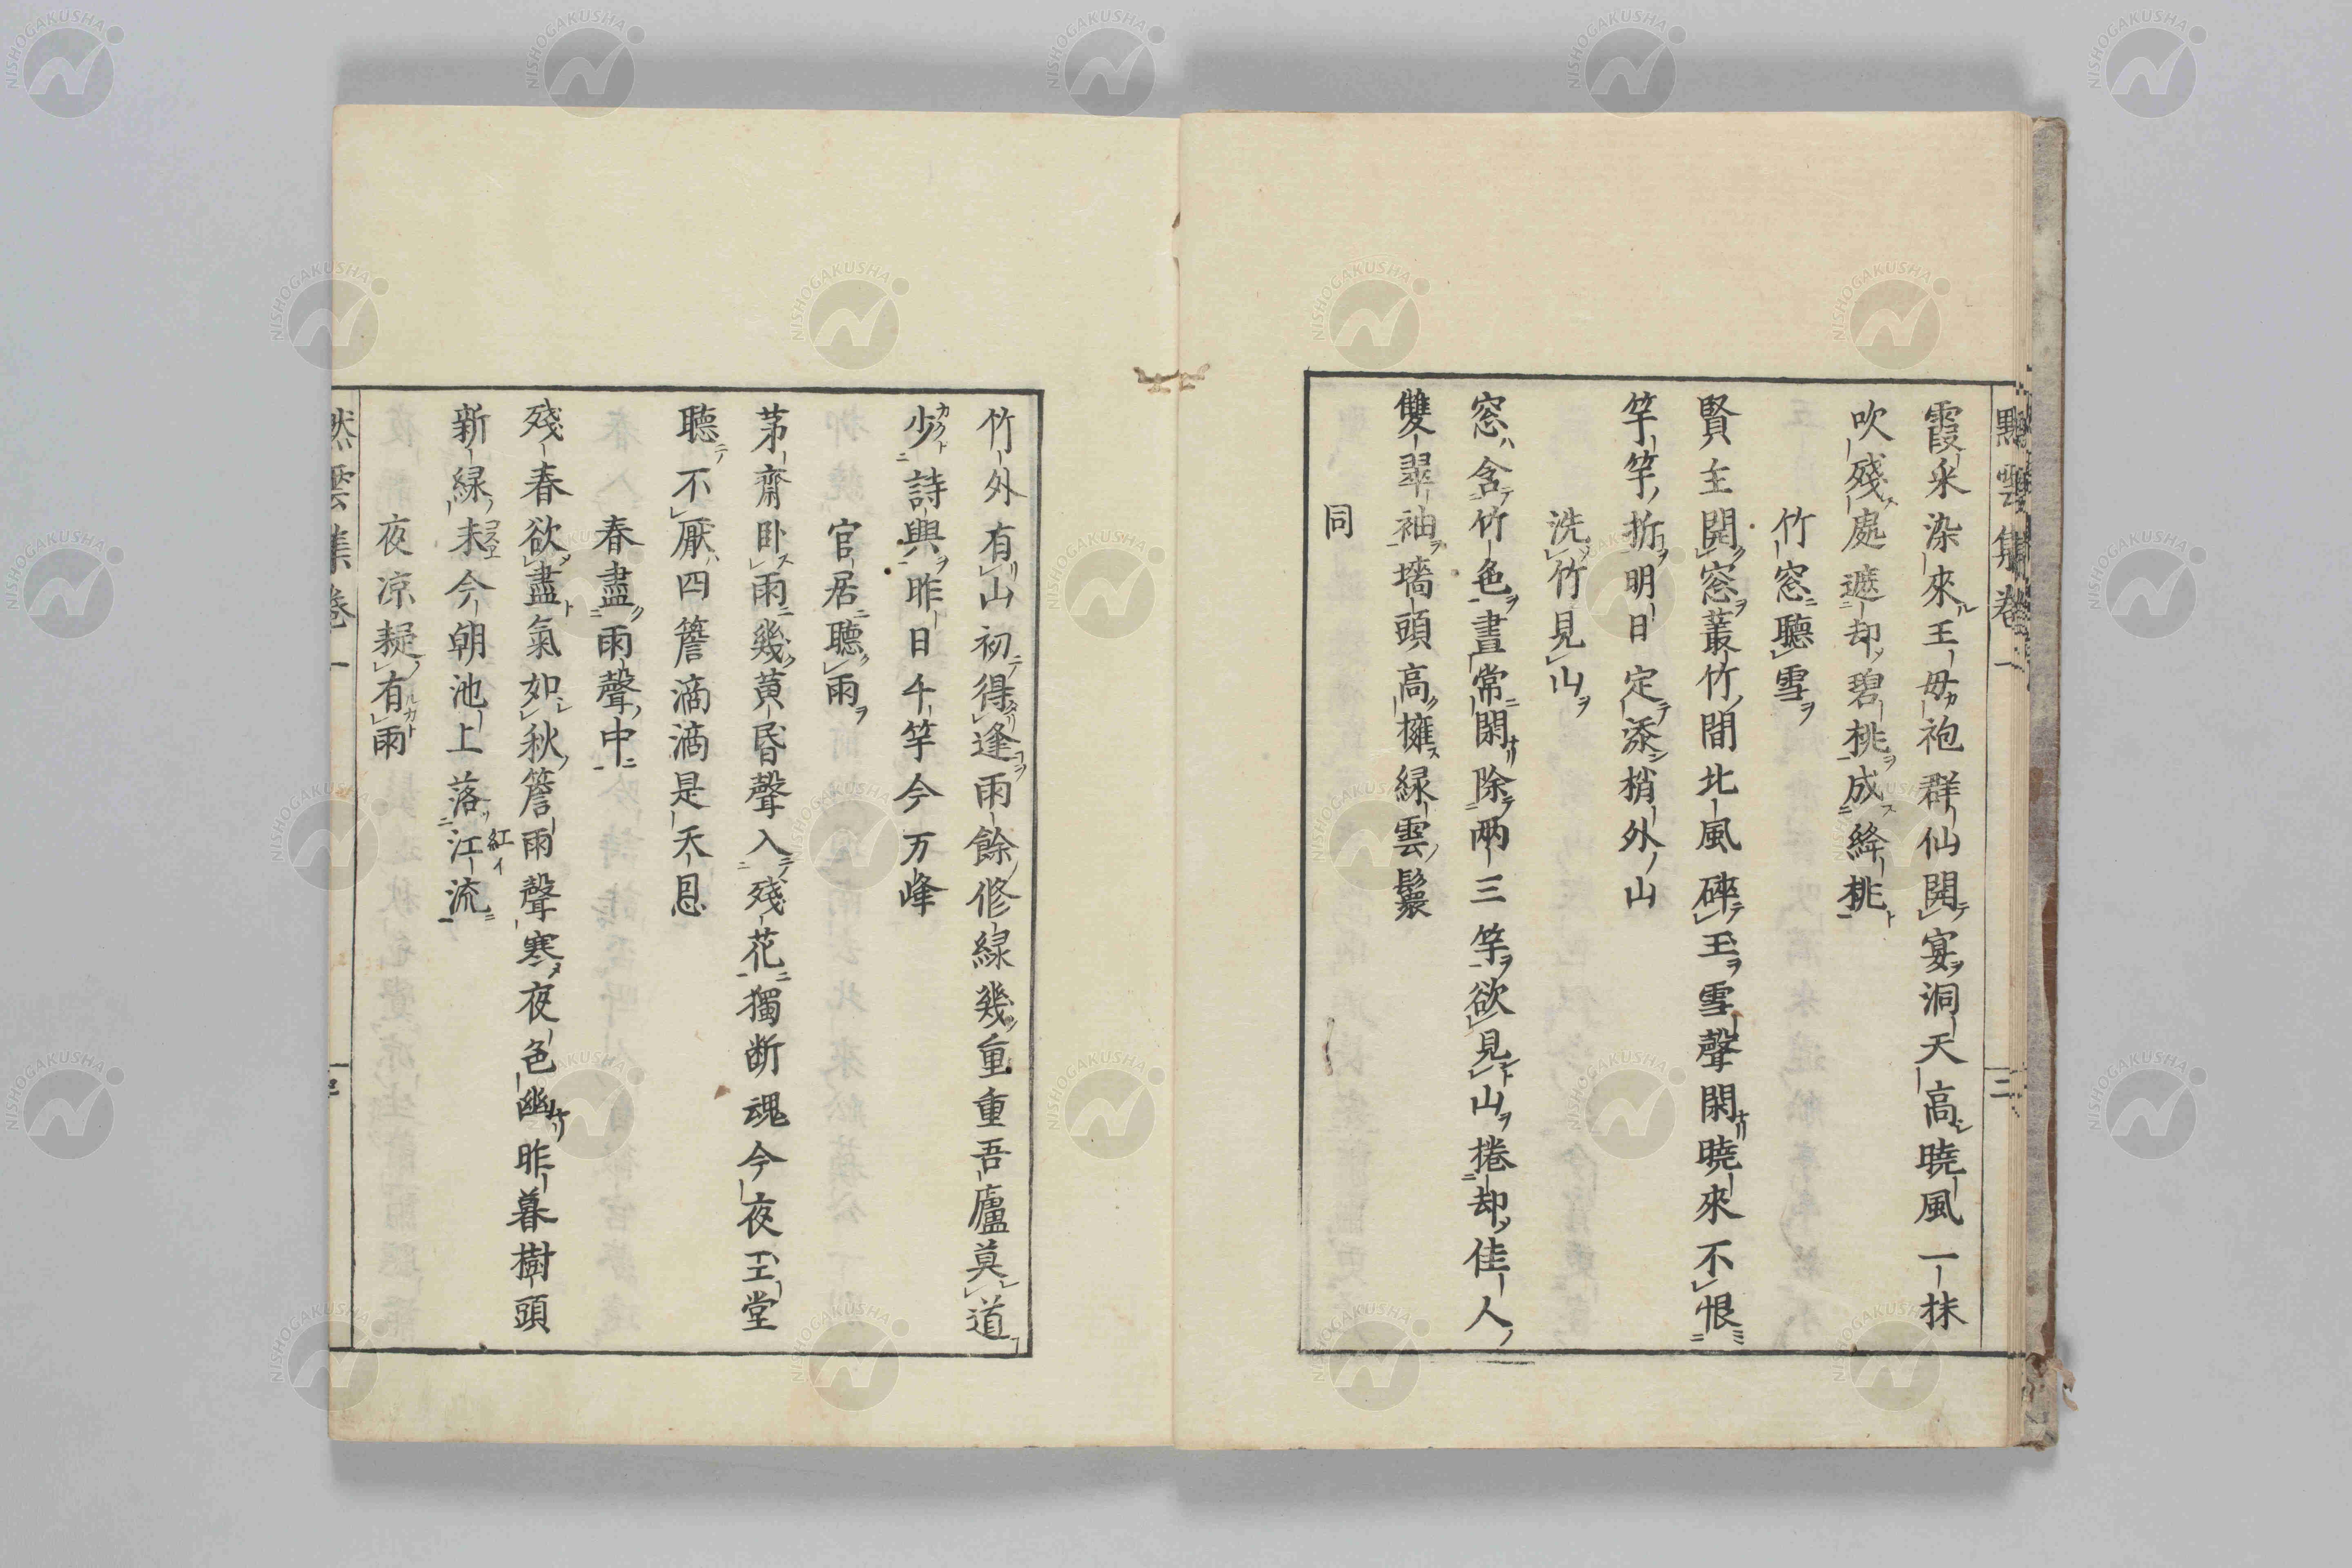 黙雲集卷一
三
霞采染來王母袍群仙開宴洞天高曉風一抹
吹殘處遮却碧桃成絳桃
竹窓聽雪
賢主開窓叢竹間北風碎玉雪聲閑曉來不恨
竿竿折明日定添梢外山
洗竹見山
窓含竹色晝常閑除兩三竿欲見山捲却佳人
雙翠袖墻頭高擁綠雲鬟
同
竹外有山初得逢雨餘修綠幾重重吾廬莫道
少詩興昨日千竿今万峰
官居聽雨
茅齋臥雨幾黄昏聲入殘花獨断魂今夜玉堂
聽不厭四簷滴滴是天恩
春盡雨聲中
殘春欲盡氣如秋簷雨聲寒夜色幽昨暮樹頭
新緑未今朝池上落江流
紅イ
夜凉疑有雨
雲集卷一
NISHOGAKUSHA